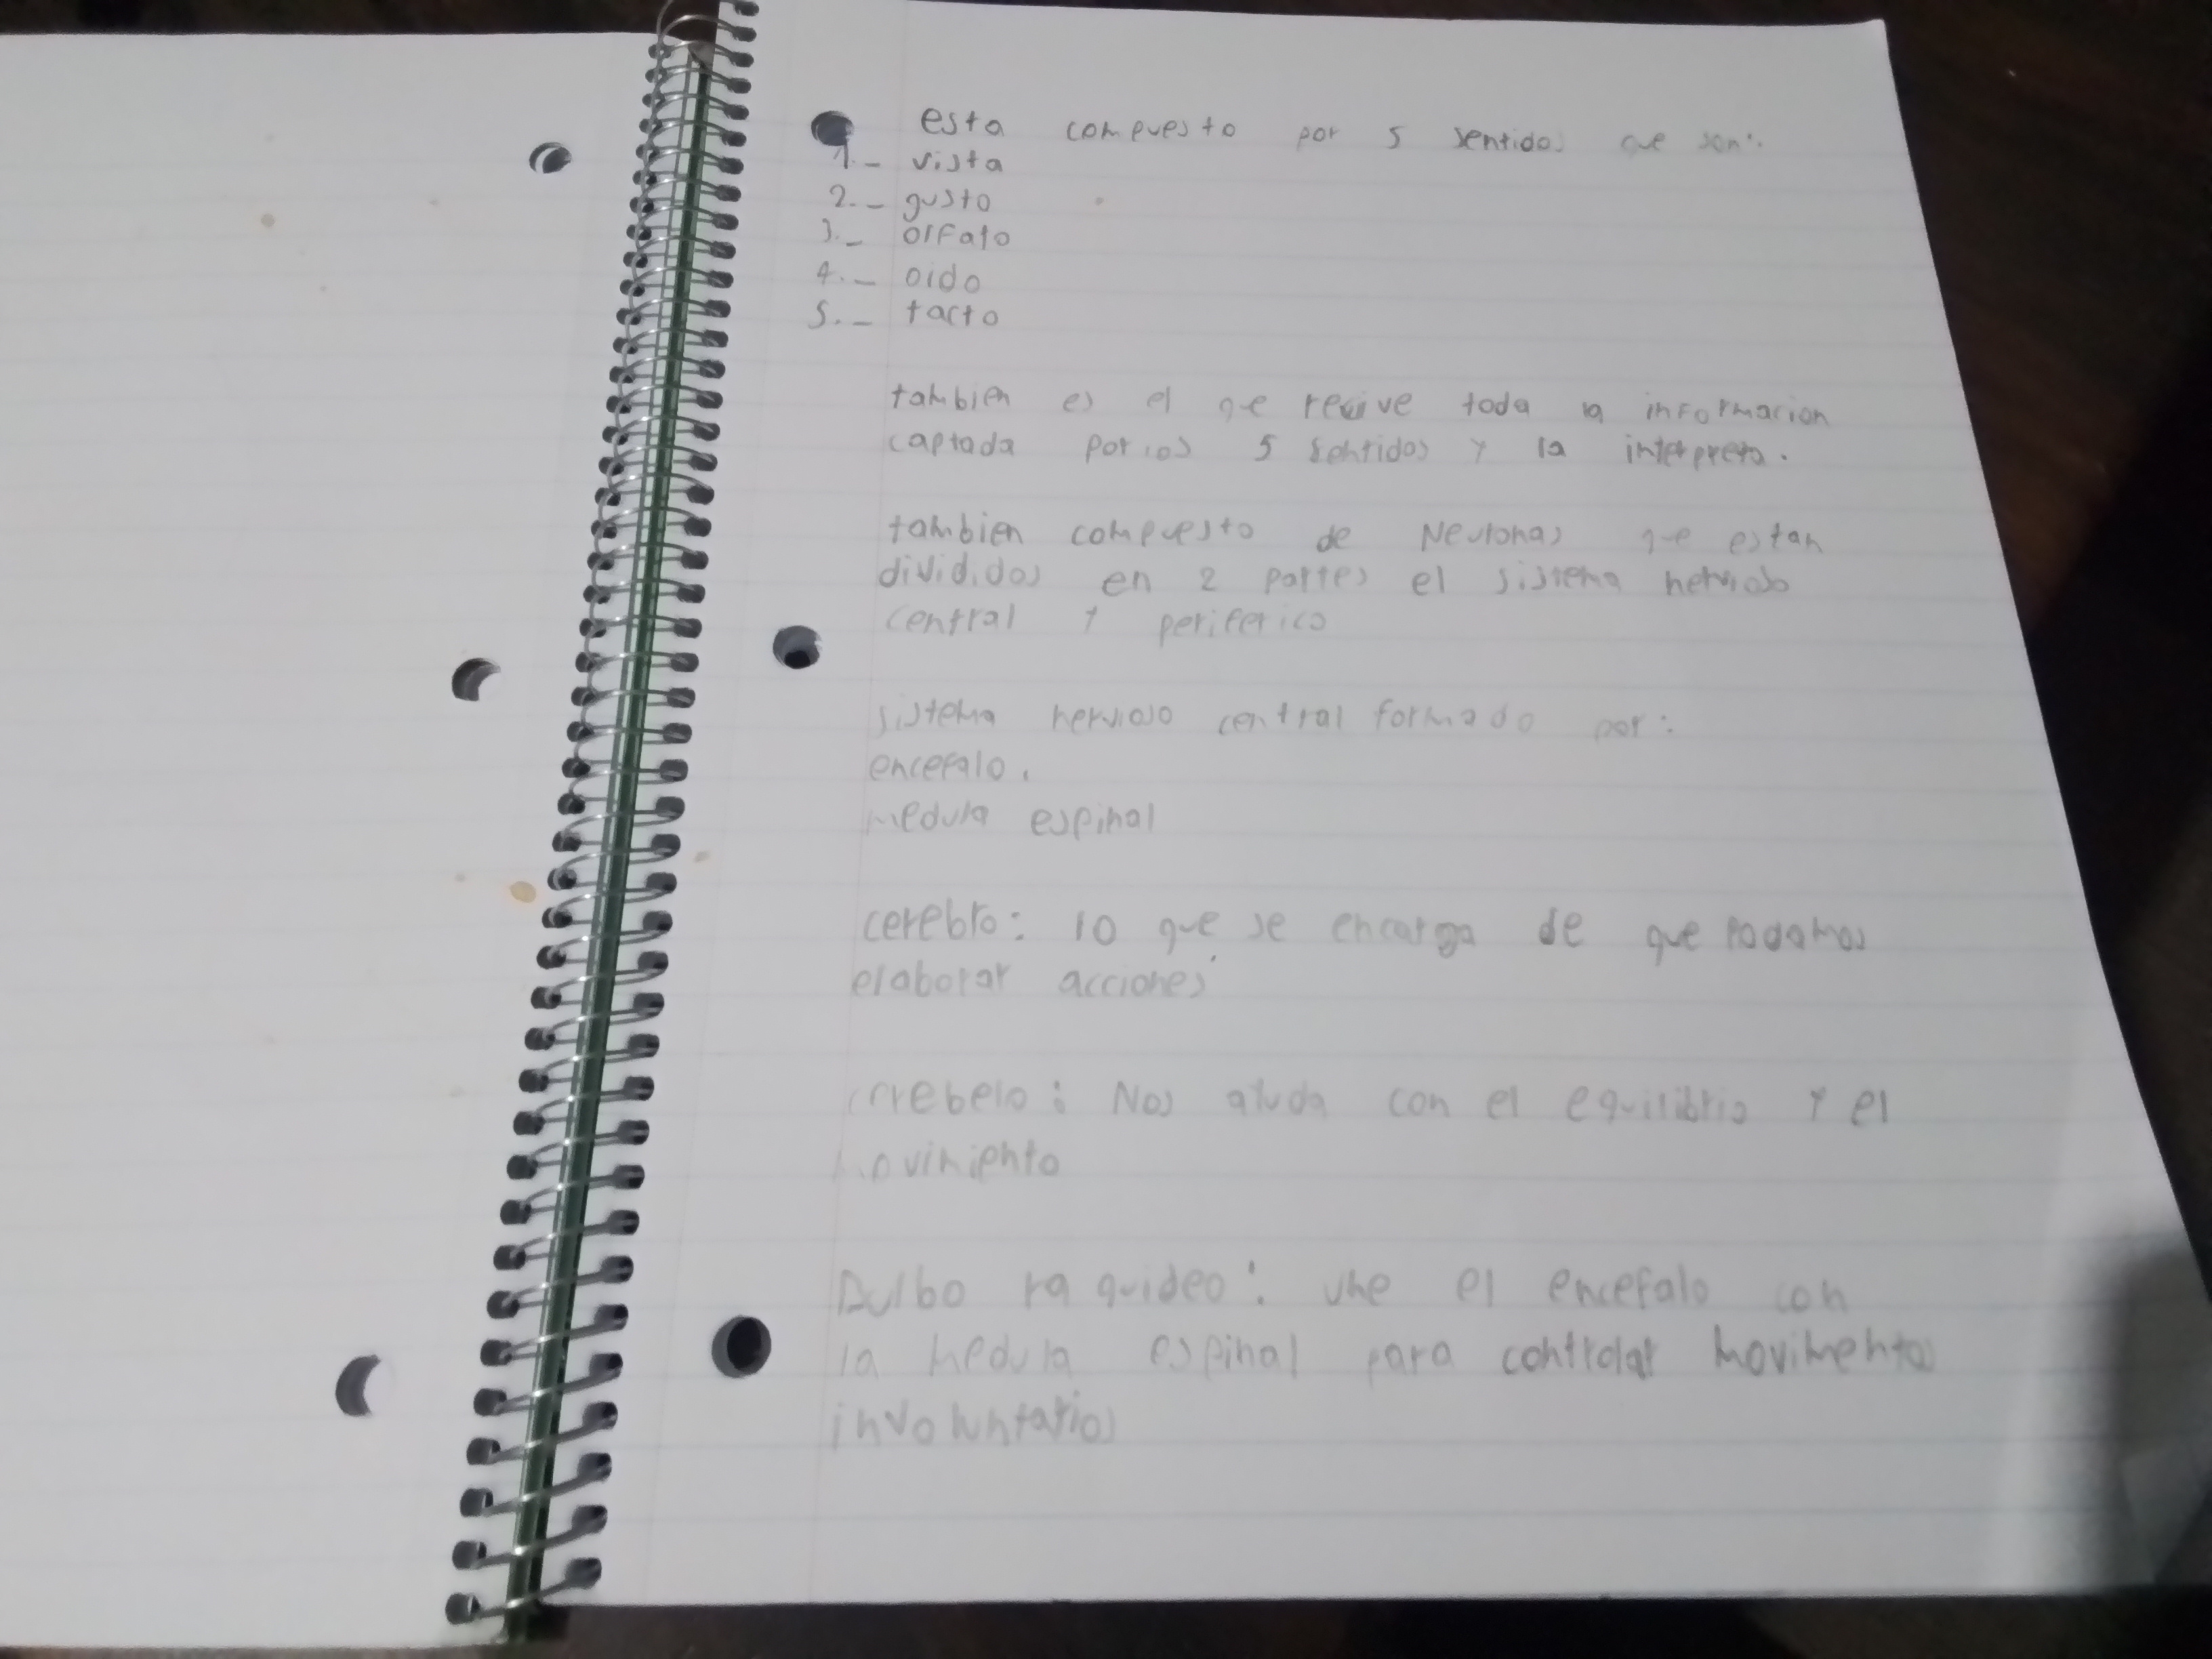 esta compuesto por 5 sentidos que son:
1._ vista
2._ gusto
3._ olfato
4._ oido
5._ tacto
tambien es el que recive toda la informacion
captada por los 5 sentidos y la interpreta.
tambien compuesto de Neuronas que estan
divididos en 2 partes el sistema nervioso
central y periferico
sistema nervioso central formado por:
encefalo.
medula espinal
cerebro: lo que se encarga de que podamos
elaborar acciones
cerebelo: Nos aluda con el equilibrio y el
movimiento
Bulbo raquideo: une el encefalo con
la medula espinal para controlar movimentos
involuntarios